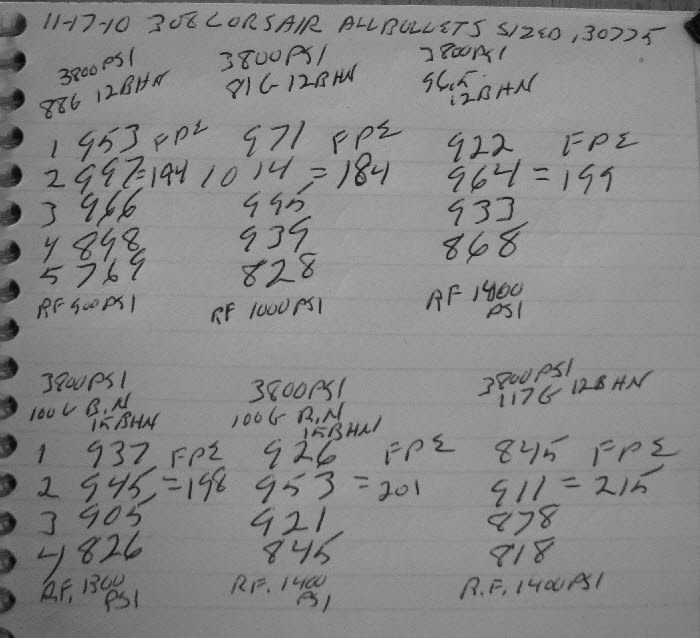 11-17-10 308 CORSAIR ALL BULLETS SIZED .30775
3800 PSI 3800 PSI 3800 PSI
88G 12BHN 81G 12BHN 96.5 12BHN
1 953 FPE 971 FPE 922 FPE
2 997=194 1014 = 184 964 = 199
3 966 995 933
4 898 939 868
5 769 828
RF 900 PSI RF 1000 PSI RF 1400 PSI
3800 PSI 3800 PSI 3800 PSI
100G R.N 15BHN 100G R.N 15BHN 117G 12BHN
1 937 FPE 926 FPE 845 FPE
2 945=198 953 =201 911 = 215
3 905 921 878
4 826 845 818
RF. 1300 PSI RF. 1400 PSI R.F. 1400 PSI